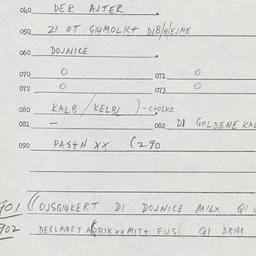 040 DER ALTER
050 ZI OT GIYMOLKT DIB/H/EIME
060 DOJNICE
070 0 071 0
072 0 073 0
080 KALB / KELBL ) - C+OLKE
081 - 082 DI GOLDENE KAL
090 PAS+N XX ( 290
901 ((OJSGIYKERT DI DOJNICE MILX QI
902 DERLANKT A DRIK XX MIT+ FUS QI DRIGE